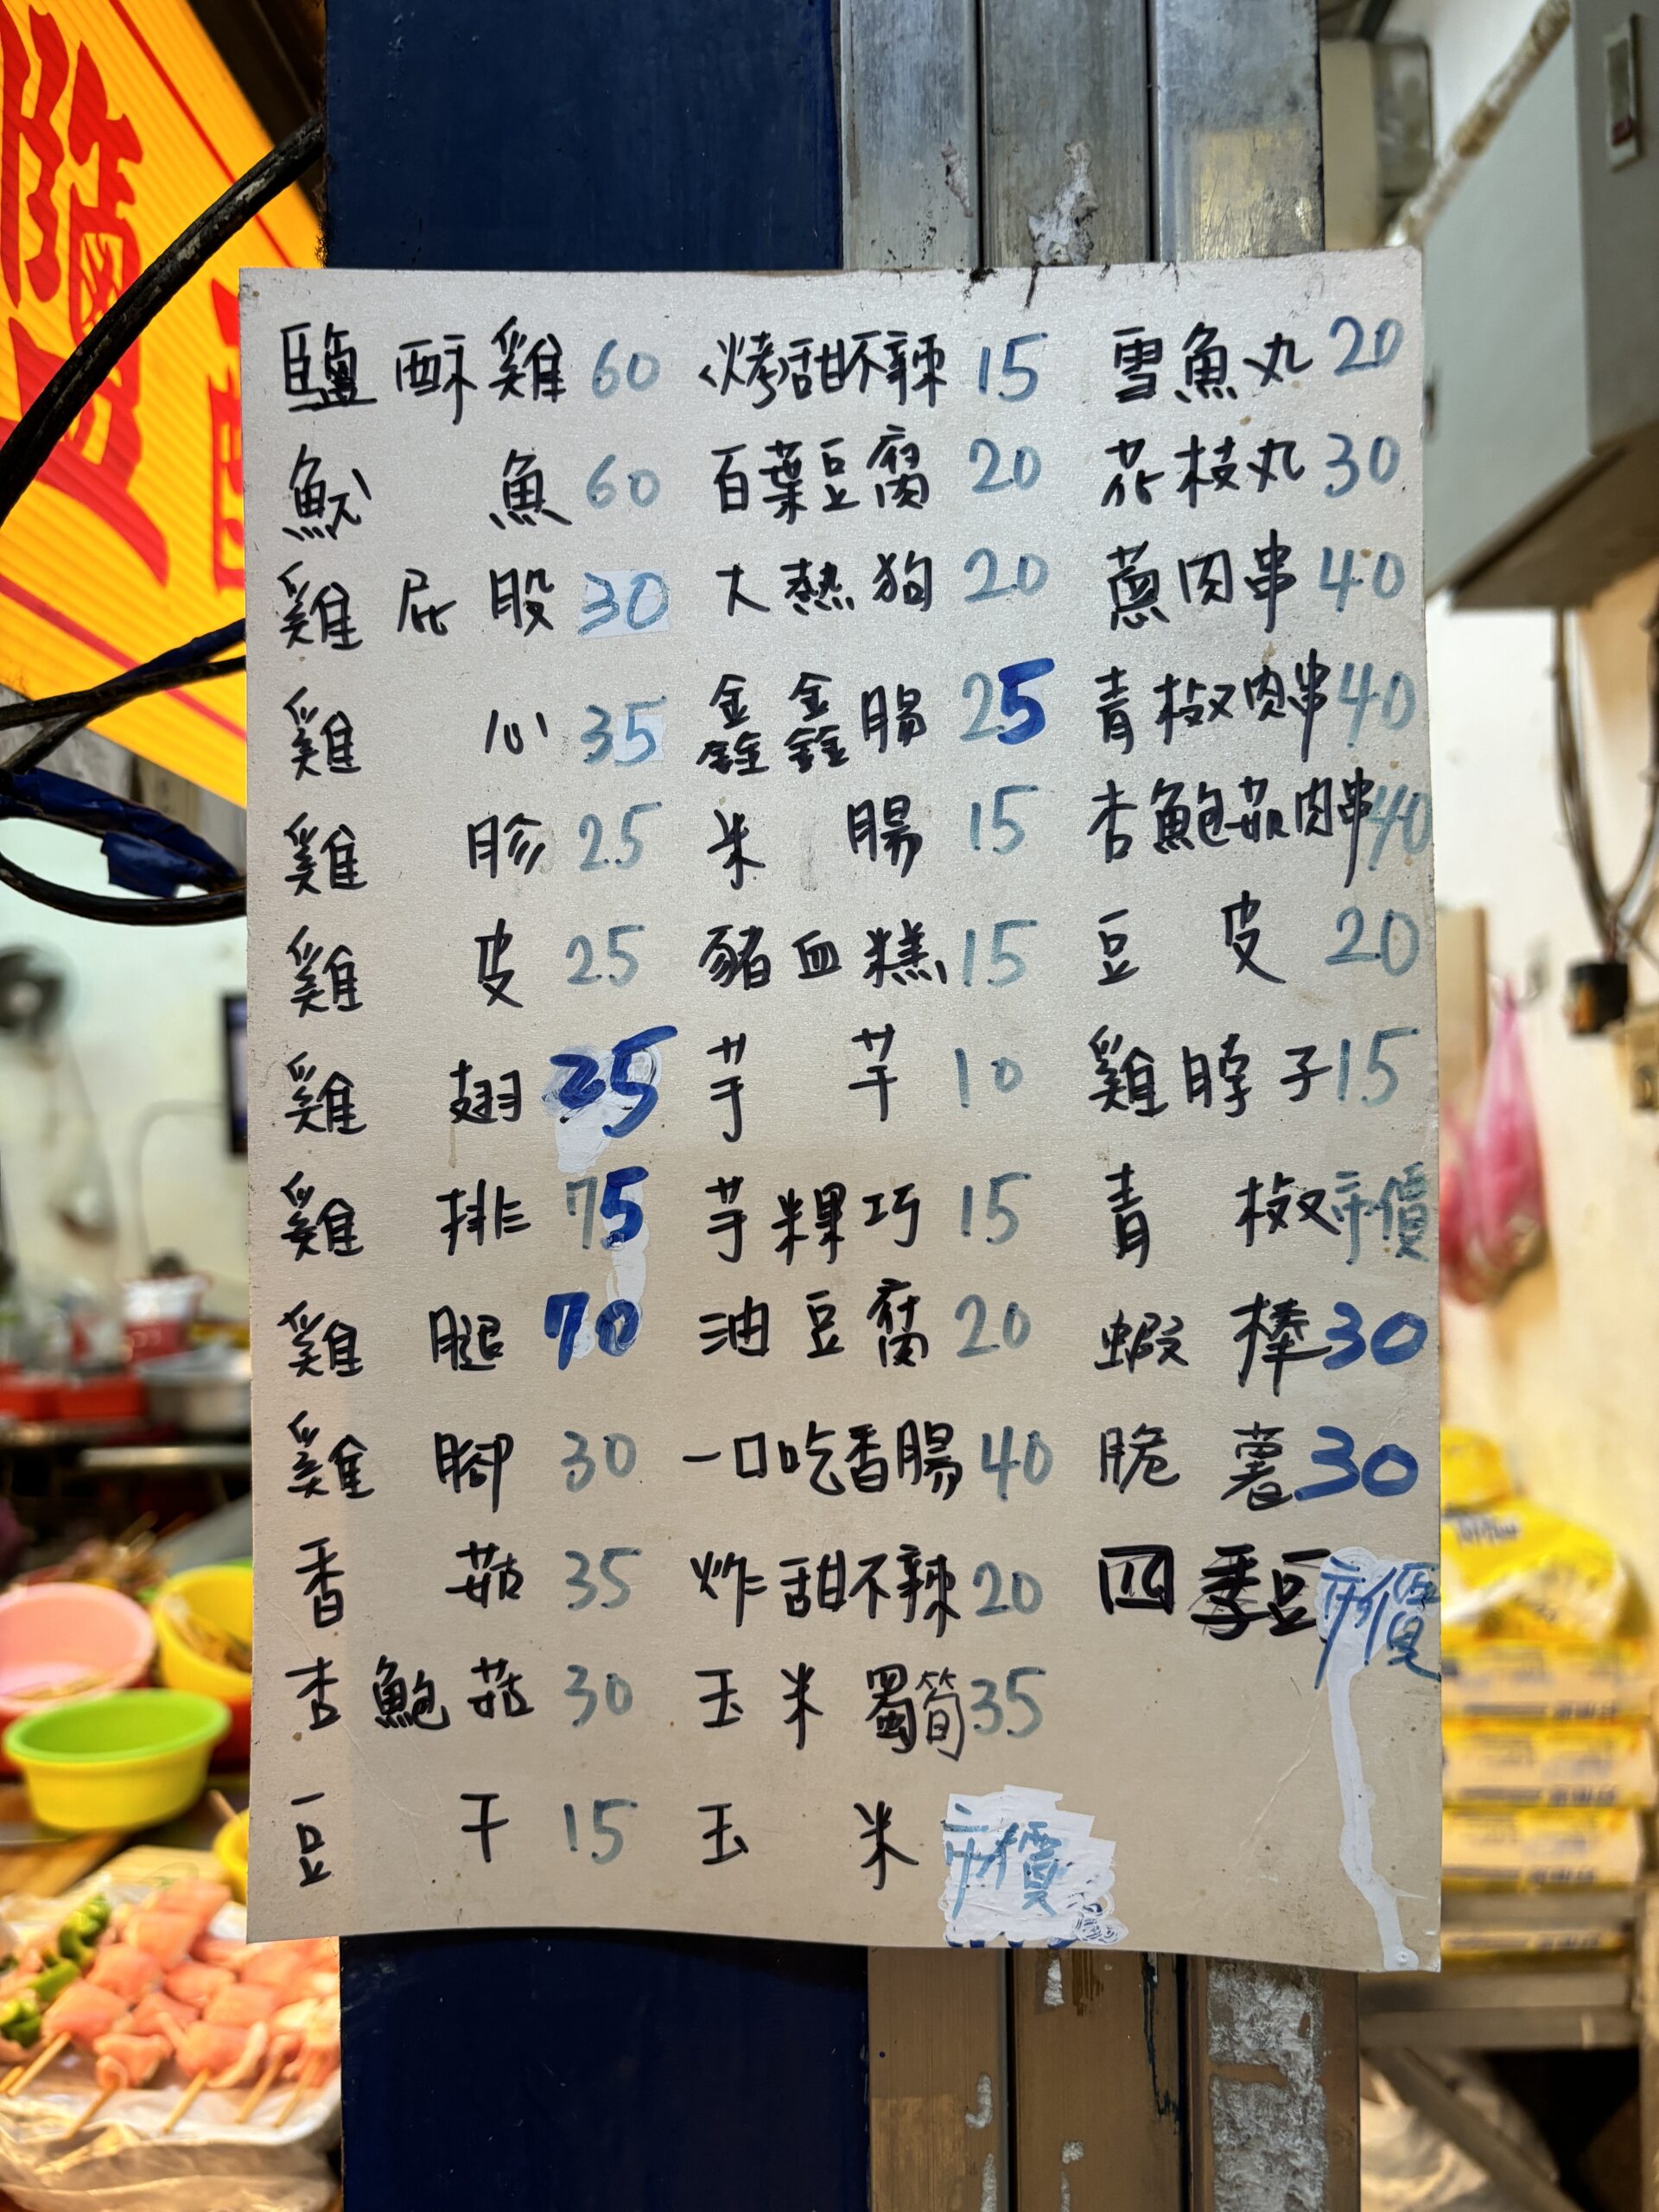 鹽酥雞 60
魷魚 60
雞屁股 30
雞心 35
雞胗 25
雞皮 25
雞翅 25
雞排 75
雞腿 70
雞腳 30
香菇 35
杏鮑菇 30
豆干 15
烤甜不辣 15
百葉豆腐 20
大熱狗 20
鑫鑫腸 25
米腸 15
豬血糕 15
芋芋 10
芋粿巧 15
油豆腐 20
一口吃香腸 40
炸甜不辣 20
玉米蜀筍 35
玉米 市價
雪魚丸 20
花枝丸 30
蔥肉串 40
青椒肉串 40
杏鮑菇肉串 40
豆皮 20
雞脖子 15
青椒 市價
蝦棒 30
脆薯 30
四季豆 市價